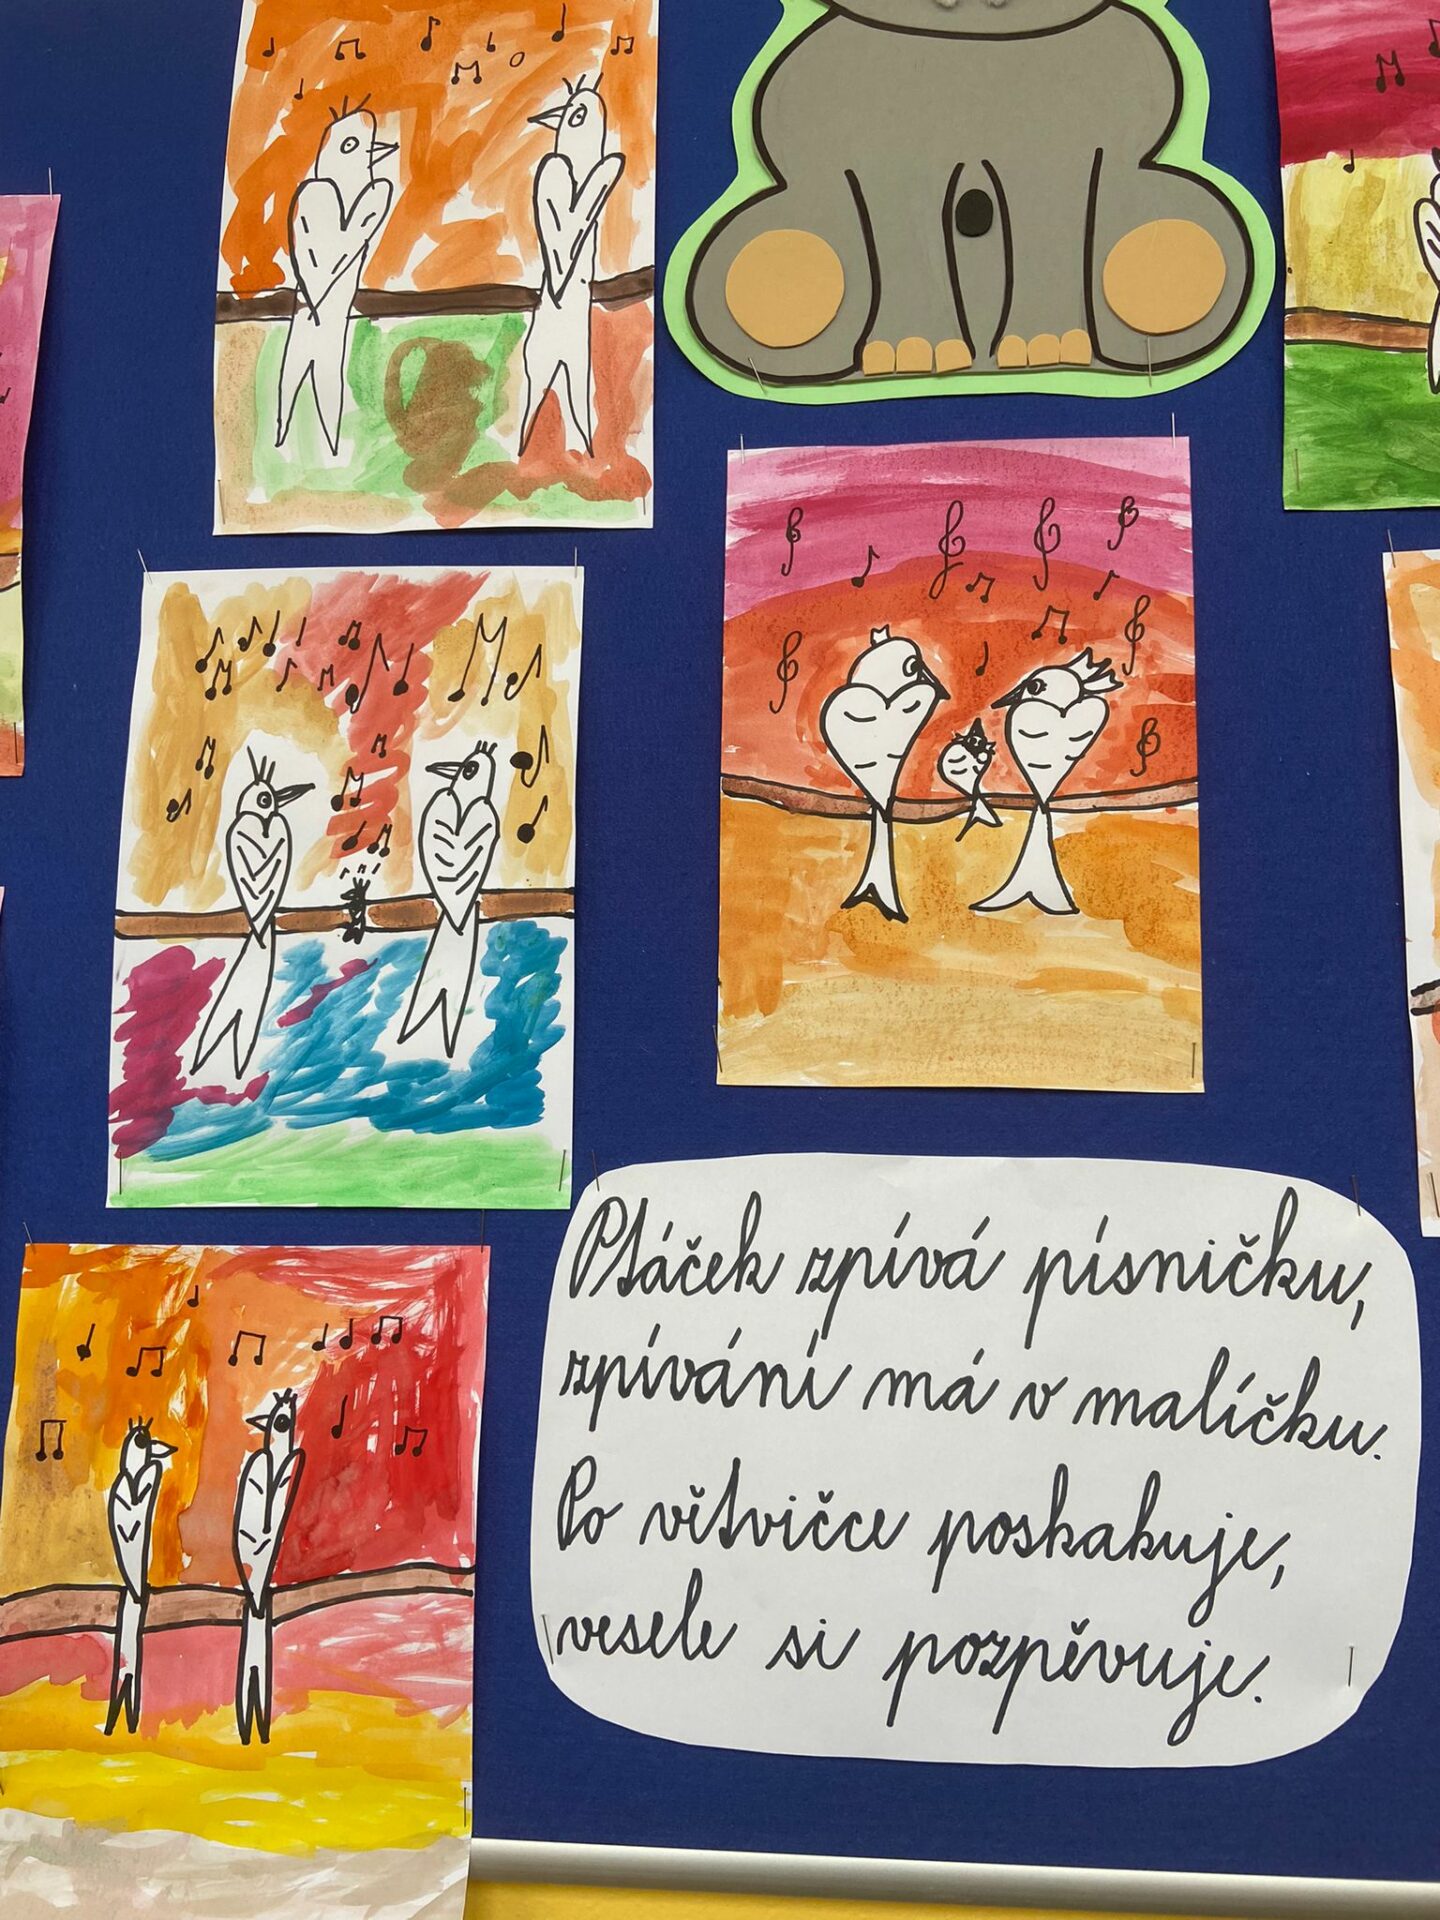 Ptáček zpívá písničku,
zpívání má v malíčku.
Po větvičce poskakuje,
vesele si pozpěvuje.